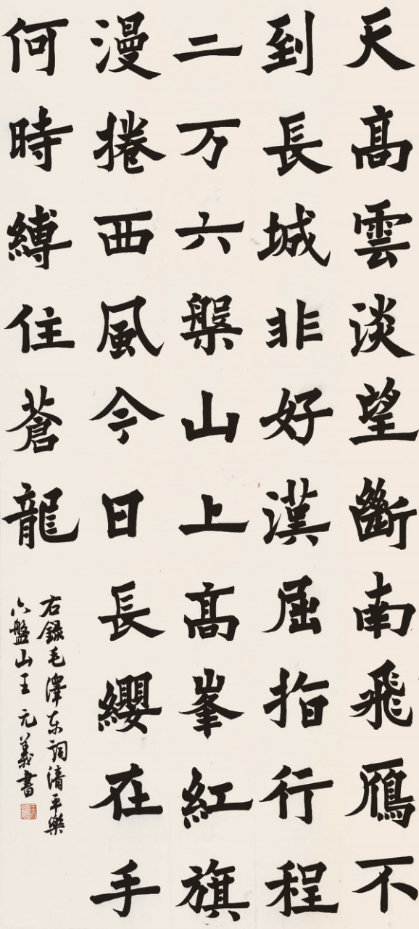 天髙雲淡望斷南飛鴈不
到長城非好漢屈指行程
二万六槃山上髙峯紅旗
漫捲西風今日長纓在手
何時縛住蒼龍
右録毛澤东詞清平樂
六盤山王元義書